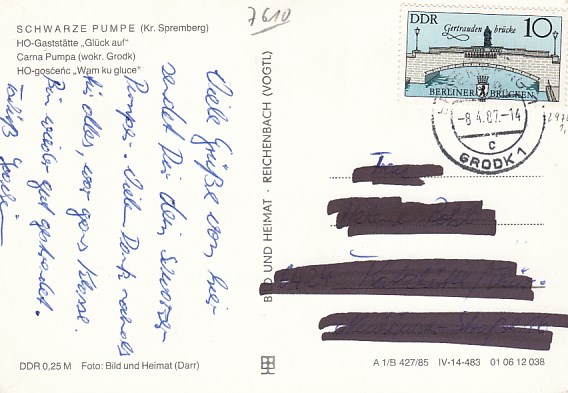 7610
SCHWARZE PUMPE (Kr. Spremberg)
HO-Gaststätte „Glück auf"
Carna Pumpa (wokr. Grodk)
HO-gosćenc „Wam ku gluce"
Viele Grüße von hier
sendet Dir dein Schwarze
Pumper. Vielen Dank nochmals
für alles, war ganz Klasse.
Bin wieder gut gelandet.
BILD UND HEIMAT · REICHENBACH (VOGTL)
DDR 10
Gertraudenbrücke
BERLINER BRÜCKEN
-8.4.87.-14
c
GRODK 1
DDR 0,25 M Foto: Bild und Heimat (Darr)
A 1/B 427/85 IV-14-483 01 06 12 038